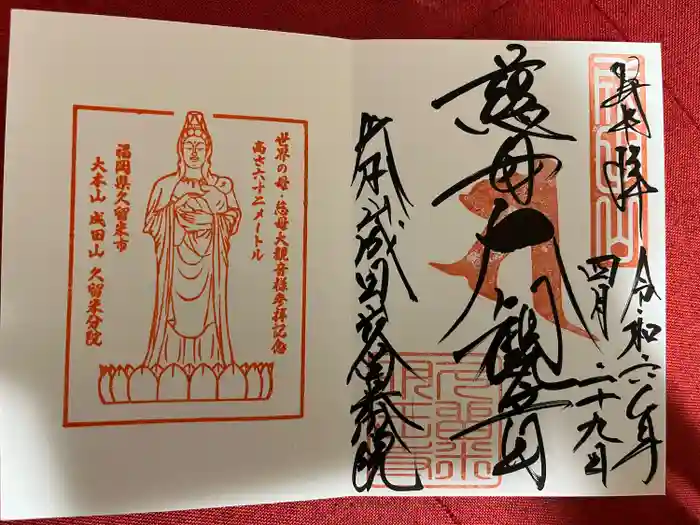 奉拝
令和六年
四月二十九日
慈母大観音
大本山成田山久留米分院
世界の母・慈母大観音様参拝記念
高さ六十二メートル
福岡県久留米市
大本山 成田山 久留米分院